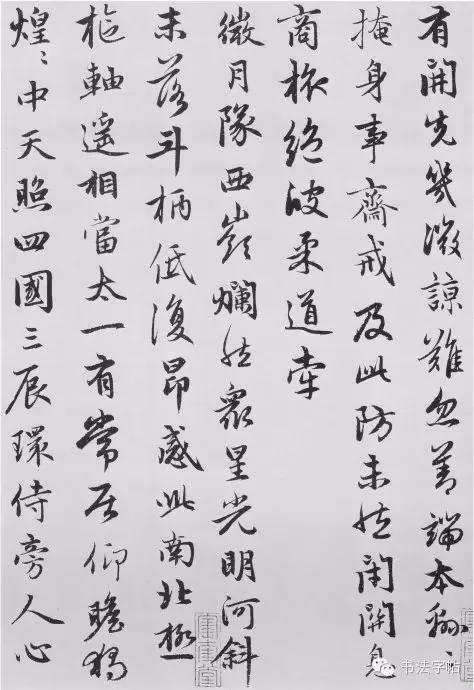 有開先幾微諒難忽善端本綿〻
掩身事齋戒及此防未然閉關息
商旅絕彼柔道牽
微月隊西嶺爛然眾星光明河斜
未落斗柄低復昂感此南北極
樞軸遙相當太一有常居仰瞻獨
煌〻中天照四國三辰環侍旁人心
书法字帖